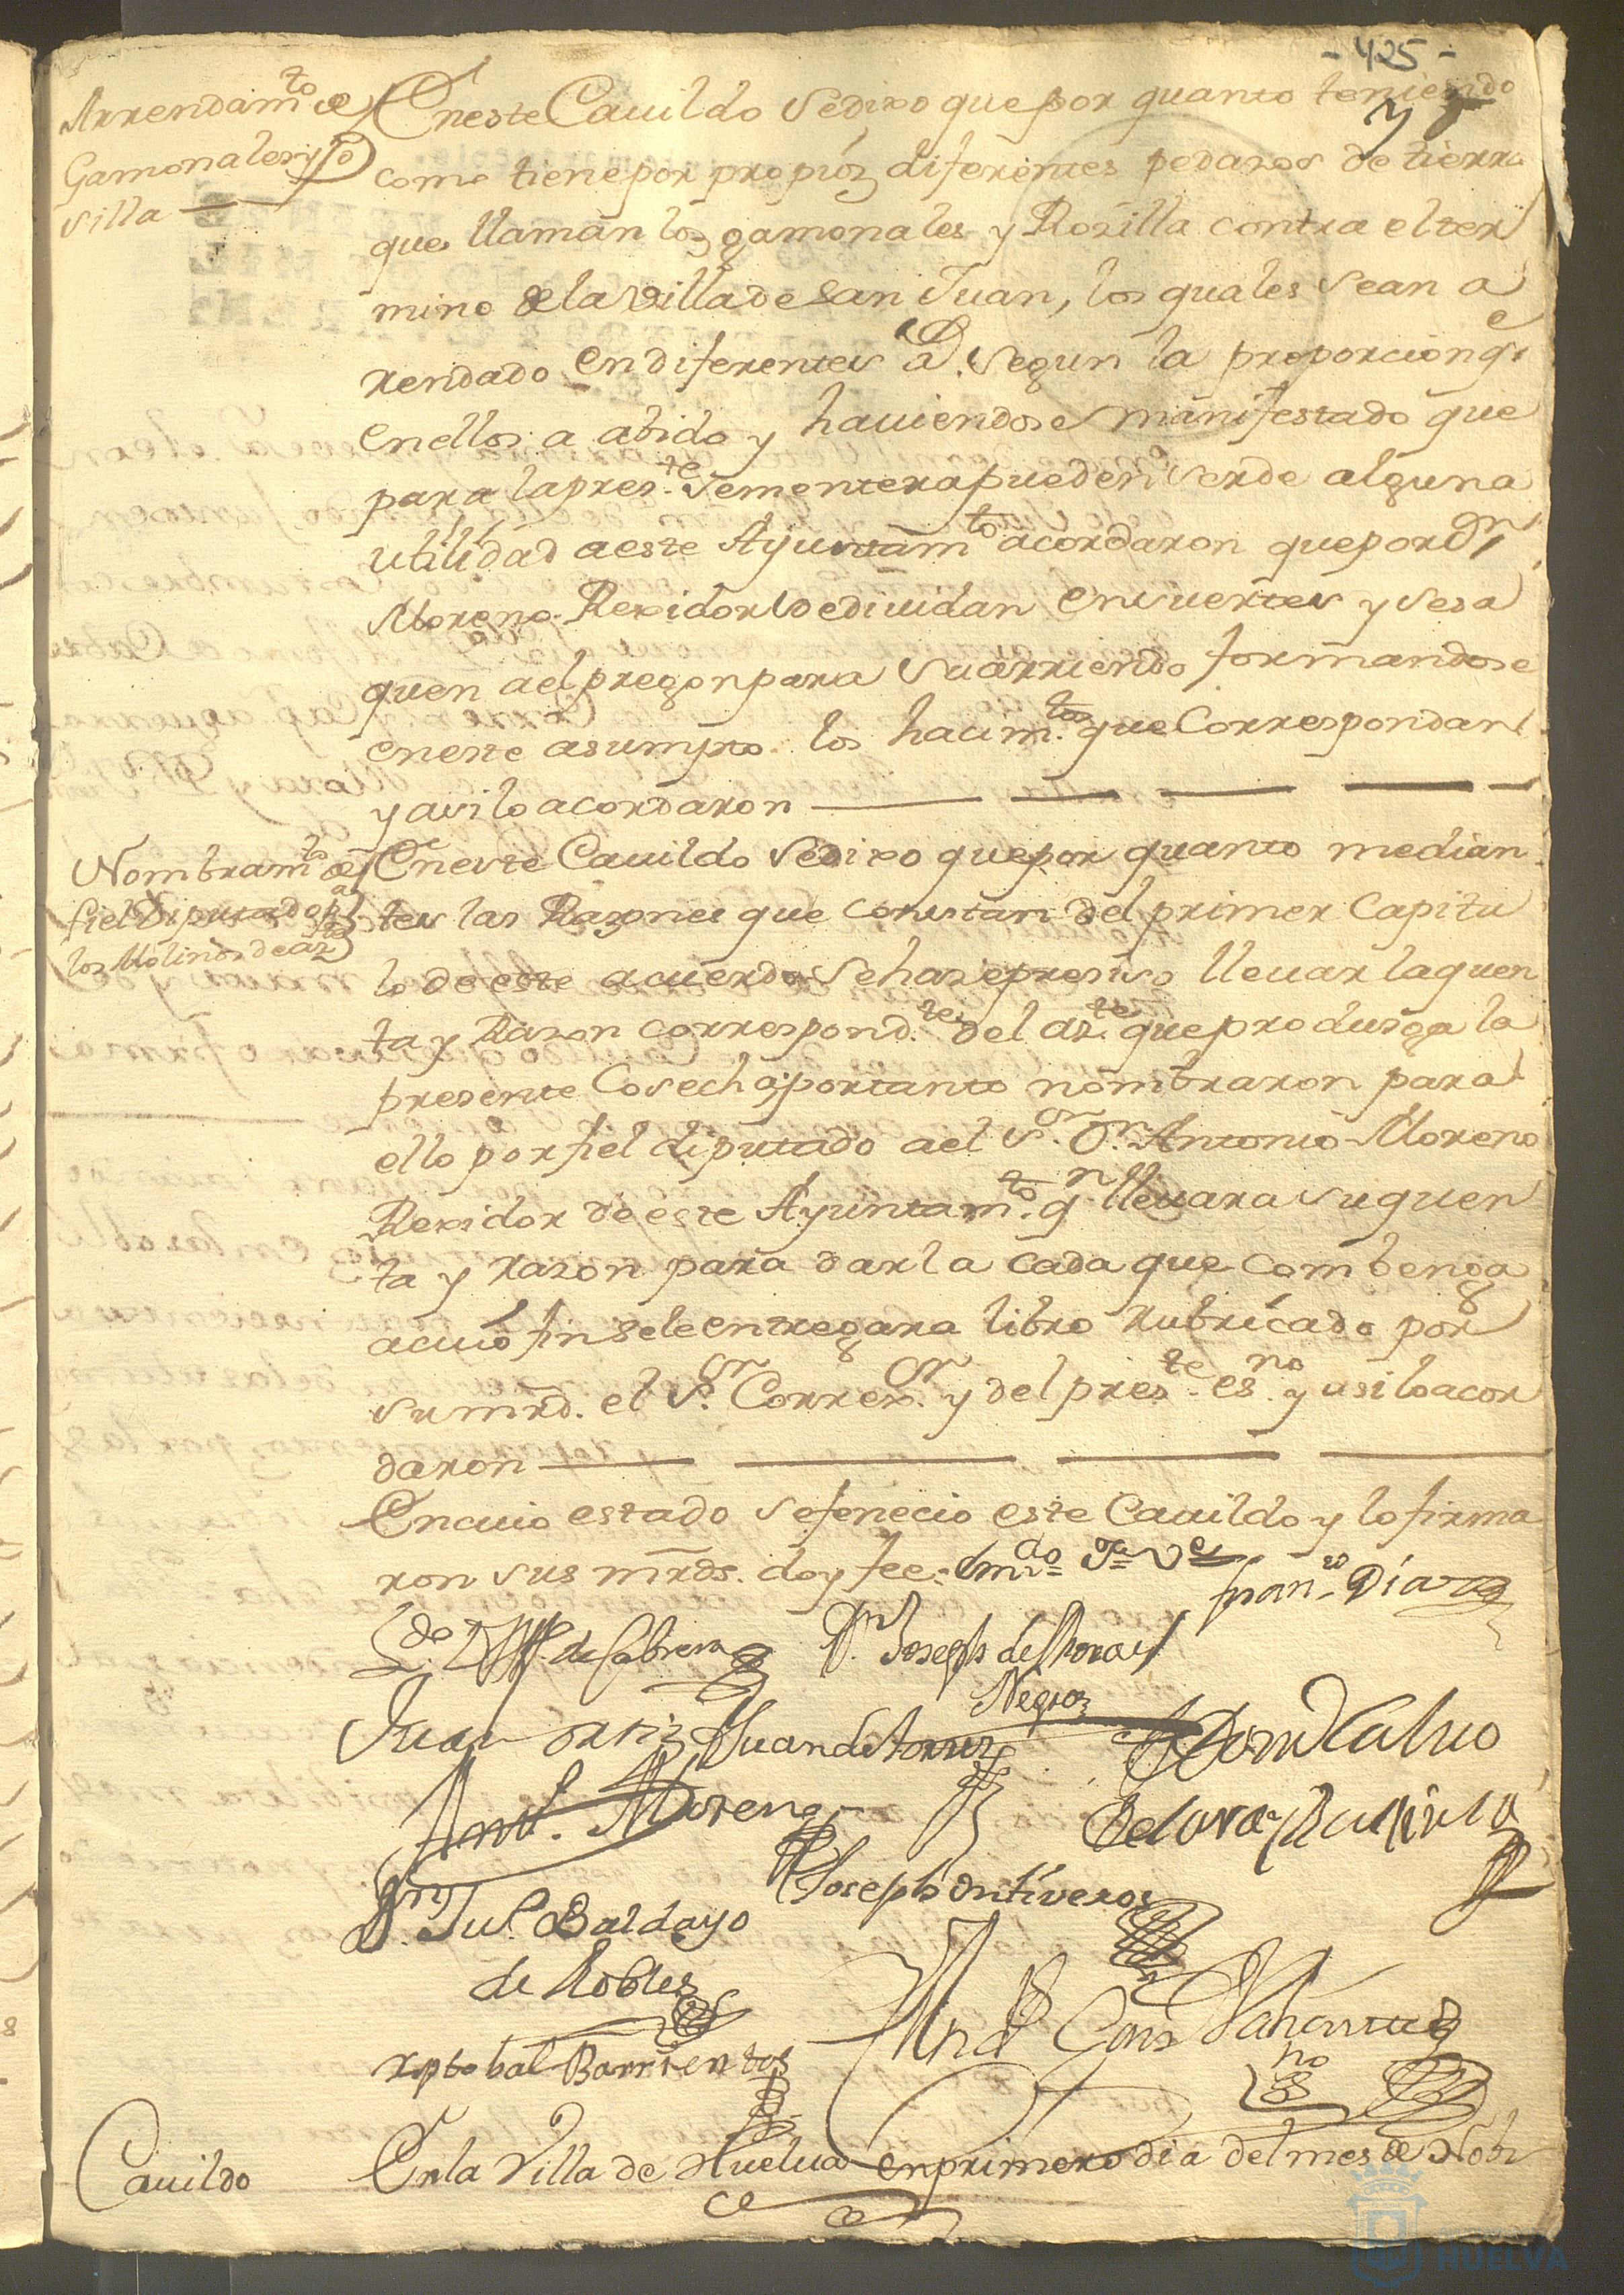 - 425 -
Arrendamto de
Gamonales y Ro
silla
En este Cauildo se dixo que por quanto teniendo
como tiene por propios diferentes pedazos de tierra
que llaman los gamonales y Rosilla contra el ter
mino de la villa de San Juan, los quales se an a
rendado en diferentes segun la proporcion qe
en ellos a abido y hauiendose manifestado que
para la preste sementera pueden ser de alguna
utilidad a este Ayuntamto acordaron que por Dn
Moreno Rexidor se diuidan en suertes y se sa
quen a el pregon para su arriendo formandose
en este asumpto los hacimtos que Correspondan
y asi lo acordaron
Nombramto de
fiel Diputado pa
los Molinos de azte
En este Cauildo se dixo que por quanto median
tes las Razones que constan del primer Capitu
lo de este acuerdo se haze presiso lleuar la quen
ta y Razon correspondte del azte que produsga la
presente Cosecha portanto nombraron para
ello por fiel diputado a el Sor Dn Antonio Moreno
Rexidor de este Ayuntamto qn lleuara su quen
ta y razon para darla cada que combenga
a cuio fin se le entregara libro rubricado por
su mrd. el Sor Correxor y del preste esno y asi lo acor
daron
En cuio estado se fenecio este Cauildo y lo firma
ron sus mrds. doy fee.
Franco Diaz
Ldo de Cabrera
Dn Joseph de Mora
Negro
Juan Ortiz
Juan de Torres
Antt. Moreno
Joseph Ontiveros
Dn Jul. Baldayo
de Robles
xptobal Barrientos
Cauildo
En la Villa de Huelua en primero dia del mes de Nobr
HUELVA